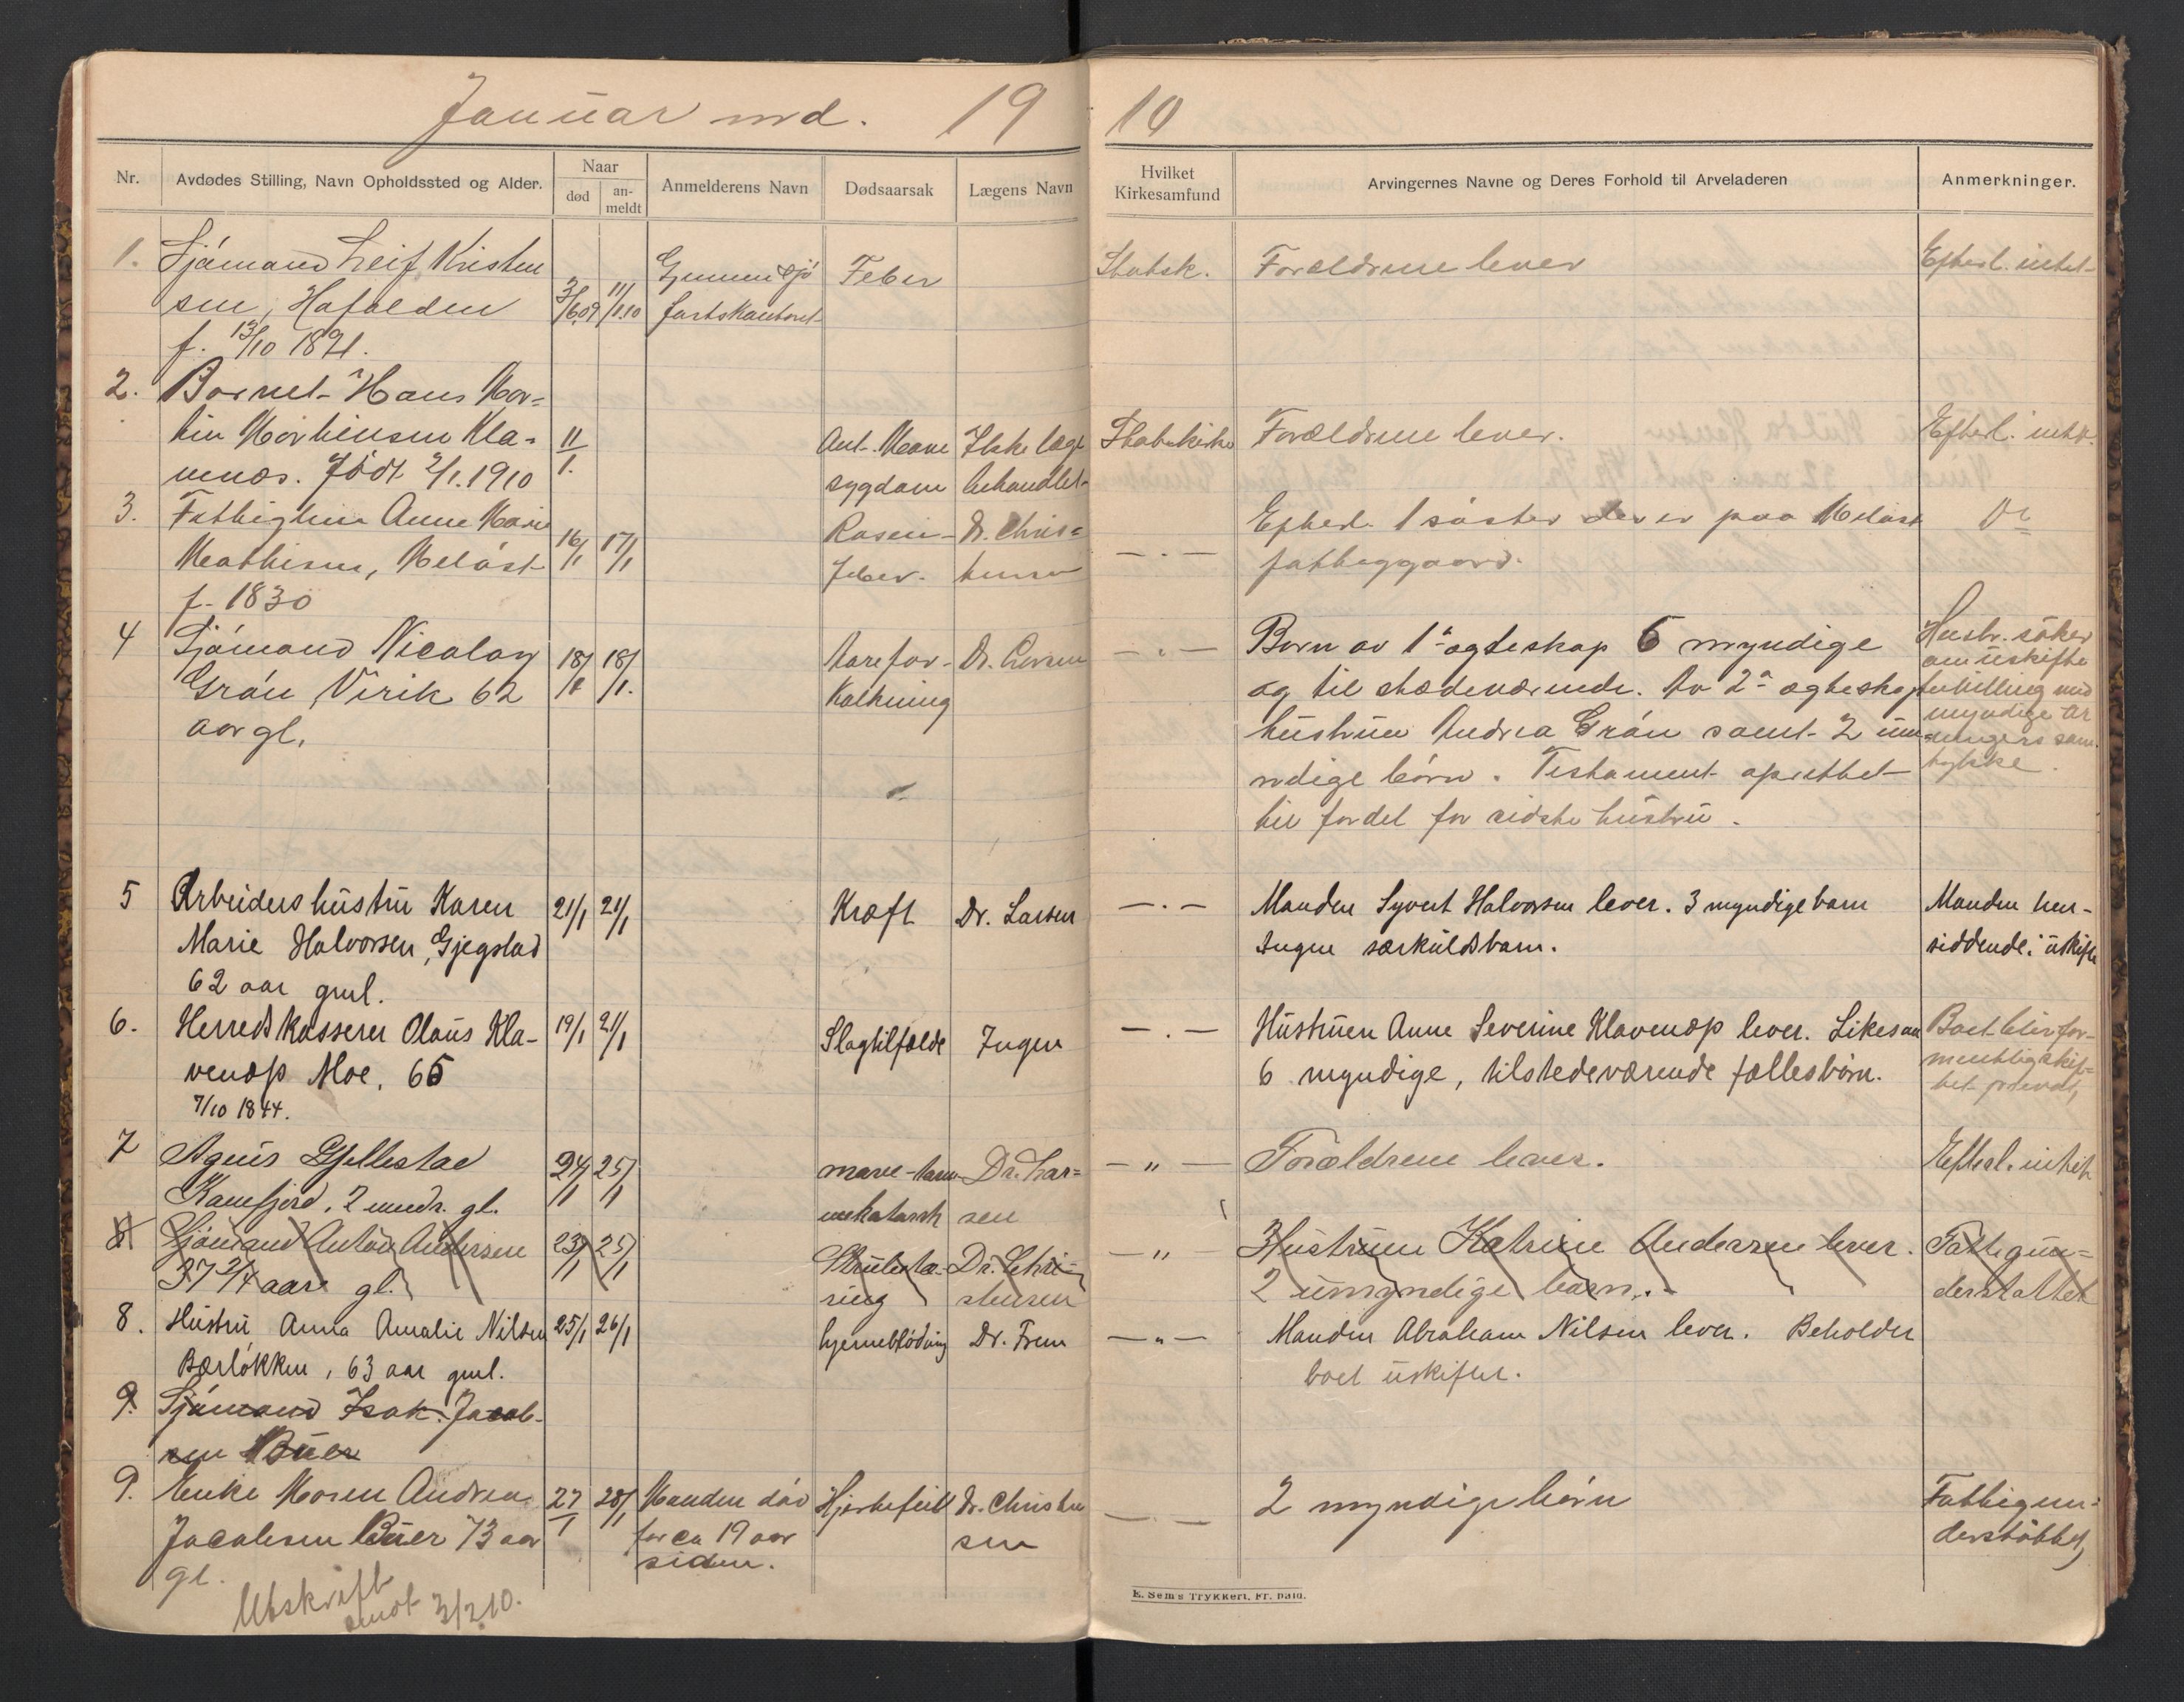 Januar md. 19
10
Nr.
Avdødes Stilling, Navn Opholdssted og Alder.
Naar
død
an-
meldt
Anmelderens Navn
Dødsaarsak
Lægens Navn
Hvilket
Kirkesamfund
Arvingernes Navne og Deres Forhold til Arveladeren
Anmerkninger.
1. Sjømand Leif Kristen
sen, Hafalden
f. 13/10 1891.
3/6 09 11/1 10
Feber
Statsk.
Forældrene lever
Efterl. intet
2. Barnet Hans Mar=
tin Martinsen Kla=
venæs. Født 2/1. 1910
11/1.
Ant. Mave
sygdom
Ikke læge
behandlet
Statskirke
Forældrene lever.
Efterl. intet.
3. Fattiglem Anne Marie
Mathisen, Meløst
f. 1830
16/1 17/1
Rosen-
feber.
Dr. Chris=
tensen
— . —
Efterl. 1 søster der er paa Meløst
fattiggaard.
Do
4 Sjømand Nicolay
Grøn, Virik 62
aar gl.
18/1 18/1.
Aarefor-
kalkning
Dr. Larsen
— . —
Barn av 1ste ægteskap 6 myndige
og til stædeværende. Av 2det ægteskap
hustruen Andrea Grøn samt 2 umy
ndige børn. Testament oprettet
til fordel for sidste hustru.
Hustr. søker
om uskifte
bevilling med
myndige ar
vingers sam
tykke.
5 Arbeiders hustru Karen
Marie Halvorsen, Gjegstad
62 aar gml.
21/1 21/1
Kræft
Dr. Larsen
— . —
Manden Syvert Halvorsen lever. 3 myndige barn
Ingen særkuldsbarn.
Manden hen-
siddende i uskifte
6. Herredskasserer Olaus Kla-
venæss Moe, 65
7/10 1844.
19/1 21/1
Slagtilfælde
Ingen
— . —
Hustruen Anne Severine Klavenæss lever. Likesaa
6 myndige, tilstedeværende fællesbørn.
Boet blir for-
mentlig skif-
tet privat,
7 Agnus Gjellestad
Kamfjord, 2 mndr. gl.
24/1 25/1
mave-tarm-
enkatarrh
Dr. Lar=
sen
— „ —
Forældrene lever.
Efterl. intet
8 Sjømand Anton Andersen
37 3/4 aars gl.
23/1 25/1
Strubetæ-
ring
Dr. Chri-
stensen
— „
Hustruen Katrine Andersen lever.
2 umyndige barn.
Fattigun=
derstøttet
8. Hustru Anna Amalie Nilsen
Bærløkken, 63 aar gml.
25/1 26/1
hjerneblødning
Dr. Frem
— „ —
Manden Abraham Nilsen lever. Beholder
boet uskiftet.
9. Sjømand Isak Jacob-
sen Buer
9. Enke Maren Andrea
Jacobsen Buer 73 aar
gl.
27/1 28/1
Manden død
for ca 19 aar
siden.
Hjertefeil
Dr. Christen
sen
— . —
2 myndige børn
Fattigun=
derstøttet,
Utskrift
sendt 3/2 10.
E. Sem's Trykkeri, Fr. hald.